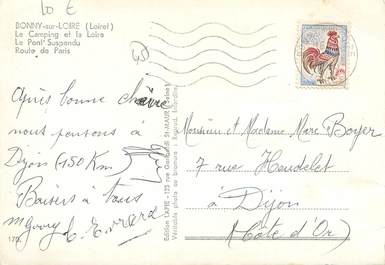 10 €
BONNY-sur-LOIRE (Loiret)
Le Camping et la Loire
Le Pont Suspendu
Route de Paris
45
Après bonne
nous pensons à
Dijon (150 Km)
Baisers à tous
Edition LAPIE - 123 rue Garibaldi St-MAUR (Seine)
Véritable photo au bromure - Reprod. Interdite
Monsieur et Madame Marc Boyer
7 rue Heudelet
à Dijon
(Côte d'Or)